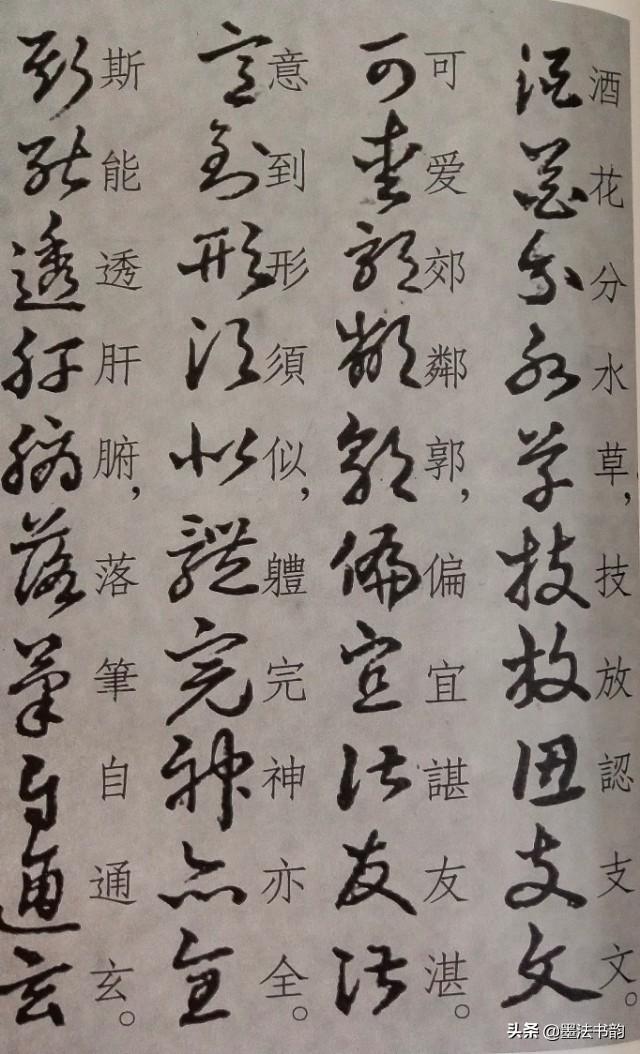 酒花分水草，技放認支文。
可爱郊鄰郭，偏宜諶友湛。
意到形須似，體完神亦全。
斯能透肝腑，落筆自通玄。
头条 @墨法书韵